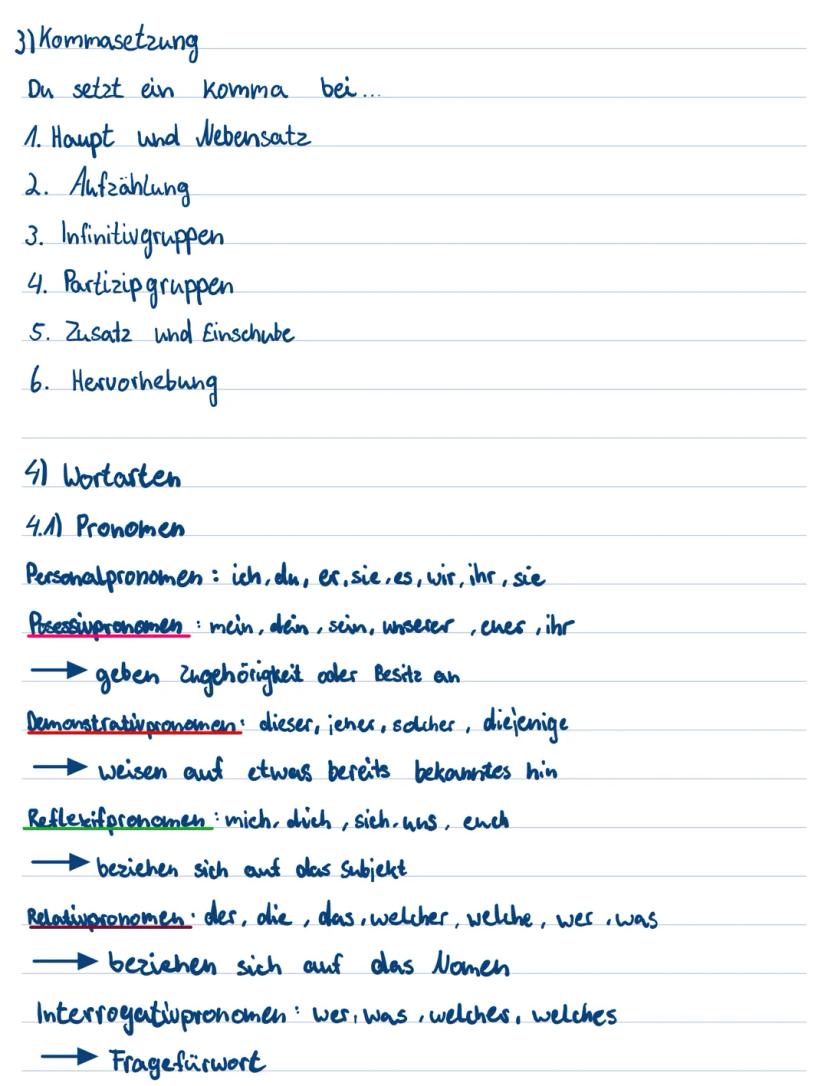 3) Kommasetzung
Du setzt ein Komma bei...
1. Haupt und Nebensatz
2. Aufzählung
3. Infinitivgruppen
4. Partizipgruppen
5. Zusatz und Einschube
6. Hervorhebung
4) Wortarten
4.1) Pronomen
Personalpronomen : ich, du, er, sie, es, wir, ihr, sie
Posessivpronomen : mein, dein, sein, unserer, euer, ihr
→ geben Zugehörigkeit oder Besitz an
Demonstrativpronomen: dieser, jener, solcher, diejenige
→ weisen auf etwas bereits bekanntes hin
Reflexifpronomen : mich, dich, sich, uns, euch
→ beziehen sich auf das Subjekt
Relativpronomen: der, die, das, welcher, welche, wer, was
→ beziehen sich auf das Nomen
Interrogativpronomen: wer, was, welcher, welches
→ Fragefürwort